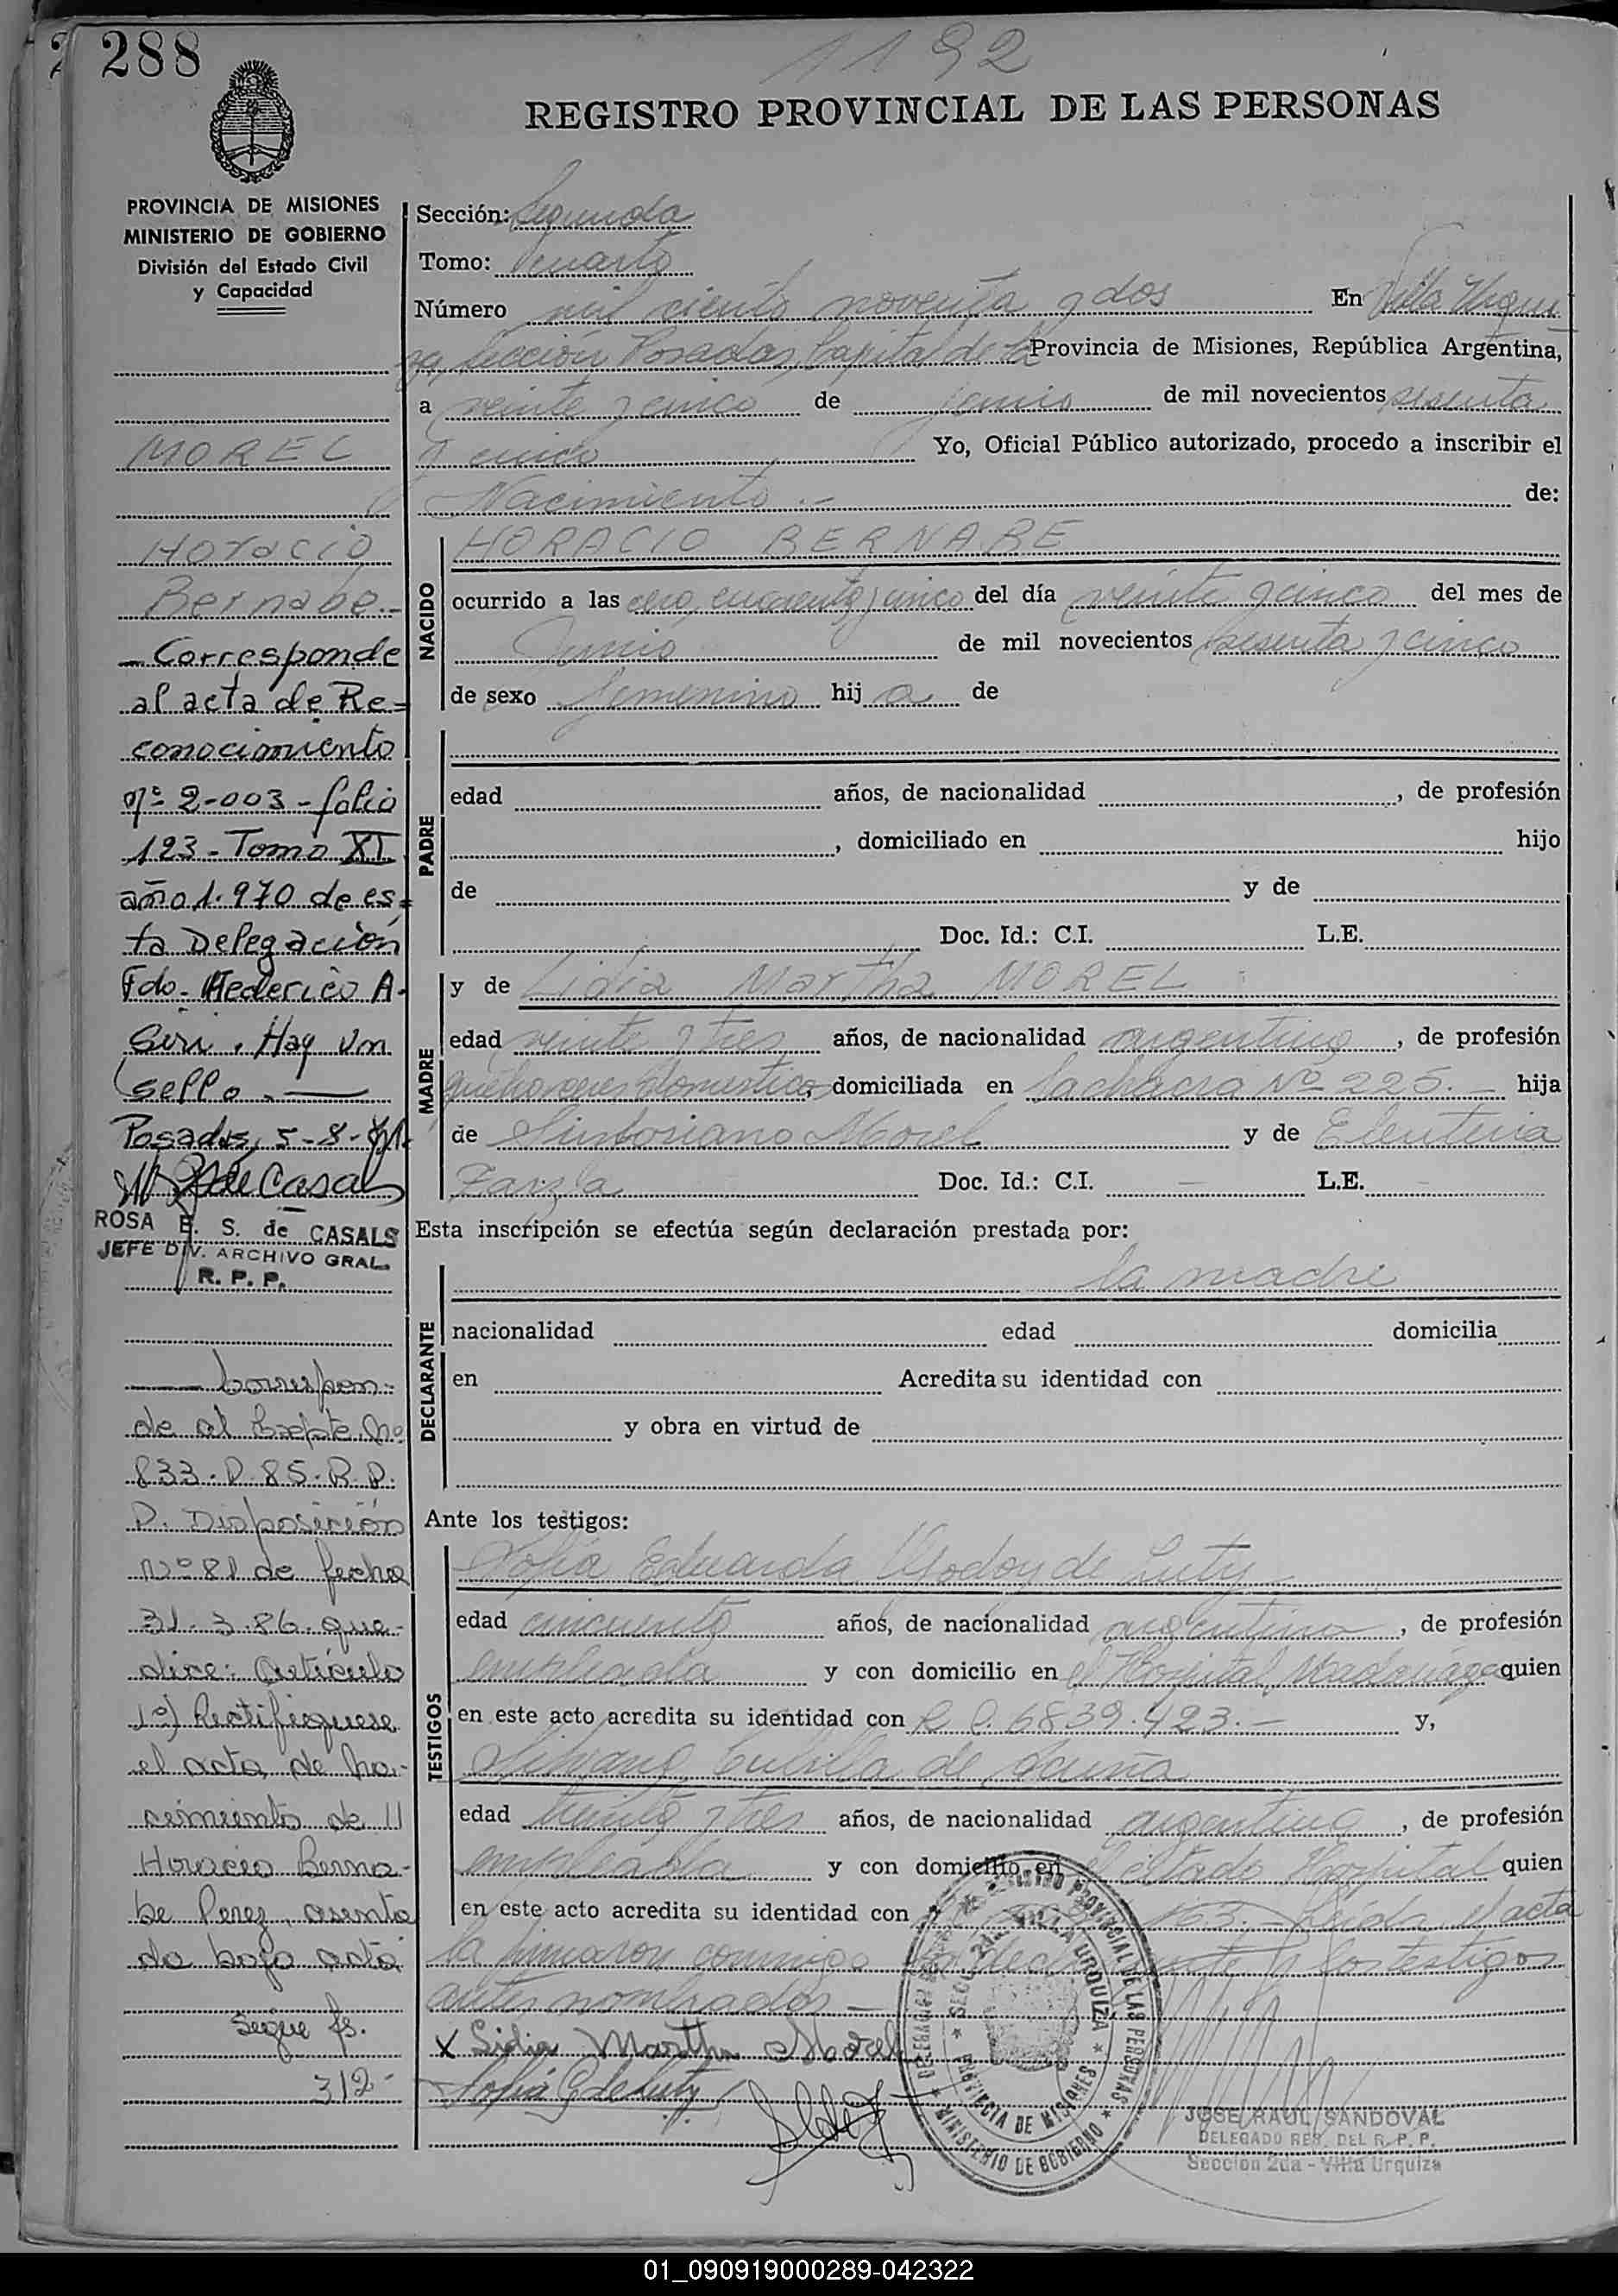 288
1192
REGISTRO PROVINCIAL DE LAS PERSONAS
PROVINCIA DE MISIONES
MINISTERIO DE GOBIERNO
División del Estado Civil
y Capacidad
MOREL
Horacio
Bernabe.-
- Corresponde
al acta de Re=
conocimiento
nº 2-003 - folio
123 - Tomo XI
año 1.970 de es=
ta Delegación
Fdo. Federico A.
Siri. Hay un
sello. —
Posadas, 5-8-71.
de Casals
ROSA E. S. de CASALS
JEFE DIV. ARCHIVO GRAL.
R. P. P.
— Correspon-
de al Expte. Nº
833. P. 85. R. P.
P. Disposición
Nº 81 de fecha
31.3.86. que
dice: Artículo
1º) Rectifíquese
el acta de na-
cimiento de 11
Horacio Berna-
be Perez, asenta
da bajo acta
Sigue fs.
312-
Sección: Segunda
Tomo: cuarto
Número mil ciento noventa y dos En Villa Urqui
za, Sección Posadas, Capital de la Provincia de Misiones, República Argentina,
a veinte y cinco de junio de mil novecientos sesenta
y cinco Yo, Oficial Público autorizado, procedo a inscribir el
Nacimiento.- de:
NACIDO
HORACIO BERNABE
ocurrido a las cero, cuarenta y cinco del día veinte y cinco del mes de
Junio de mil novecientos sesenta y cinco
de sexo femenino hija de
PADRE
edad años, de nacionalidad , de profesión
, domiciliado en hijo
de y de
Doc. Id.: C.I. L.E.
MADRE
y de Lidia Martha MOREL
edad veinte y tres años, de nacionalidad argentina, de profesión
quehaceres domesticos, domiciliada en la chacra Nº 225.- hija
de Sinforiano Morel y de Eleuteria
Zarza Doc. Id.: C.I. - L.E. -
Esta inscripción se efectúa según declaración prestada por:
DECLARANTE
la madre
nacionalidad edad domicilia
en Acredita su identidad con
y obra en virtud de
Ante los testigos:
TESTIGOS
Sofia Eduarda Godoy de Luty
edad cincuenta años, de nacionalidad argentina, de profesión
empleada y con domicilio en el Hospital Madariaga quien
en este acto acredita su identidad con 6839.423.- y,
de Acuña
edad treinta y tres años, de nacionalidad argentina, de profesión
empleada y con domicilio en el citado Hospital quien
en este acto acredita su identidad con 163.- Leída el acta
la firmaron conmigo la declarante y los testigos
antes nombrados -
x Lidia Martha Morel
Sofia G de Luty
REGISTRO PROVINCIAL DE LAS PERSONAS
VILLA URQUIZA
PROVINCIA DE MISIONES
MINISTERIO DE GOBIERNO
JOSE RAUL SANDOVAL
DELEGADO REG. DEL R. P. P.
Sección 2da - Villa Urquiza
01_090919000289-042322